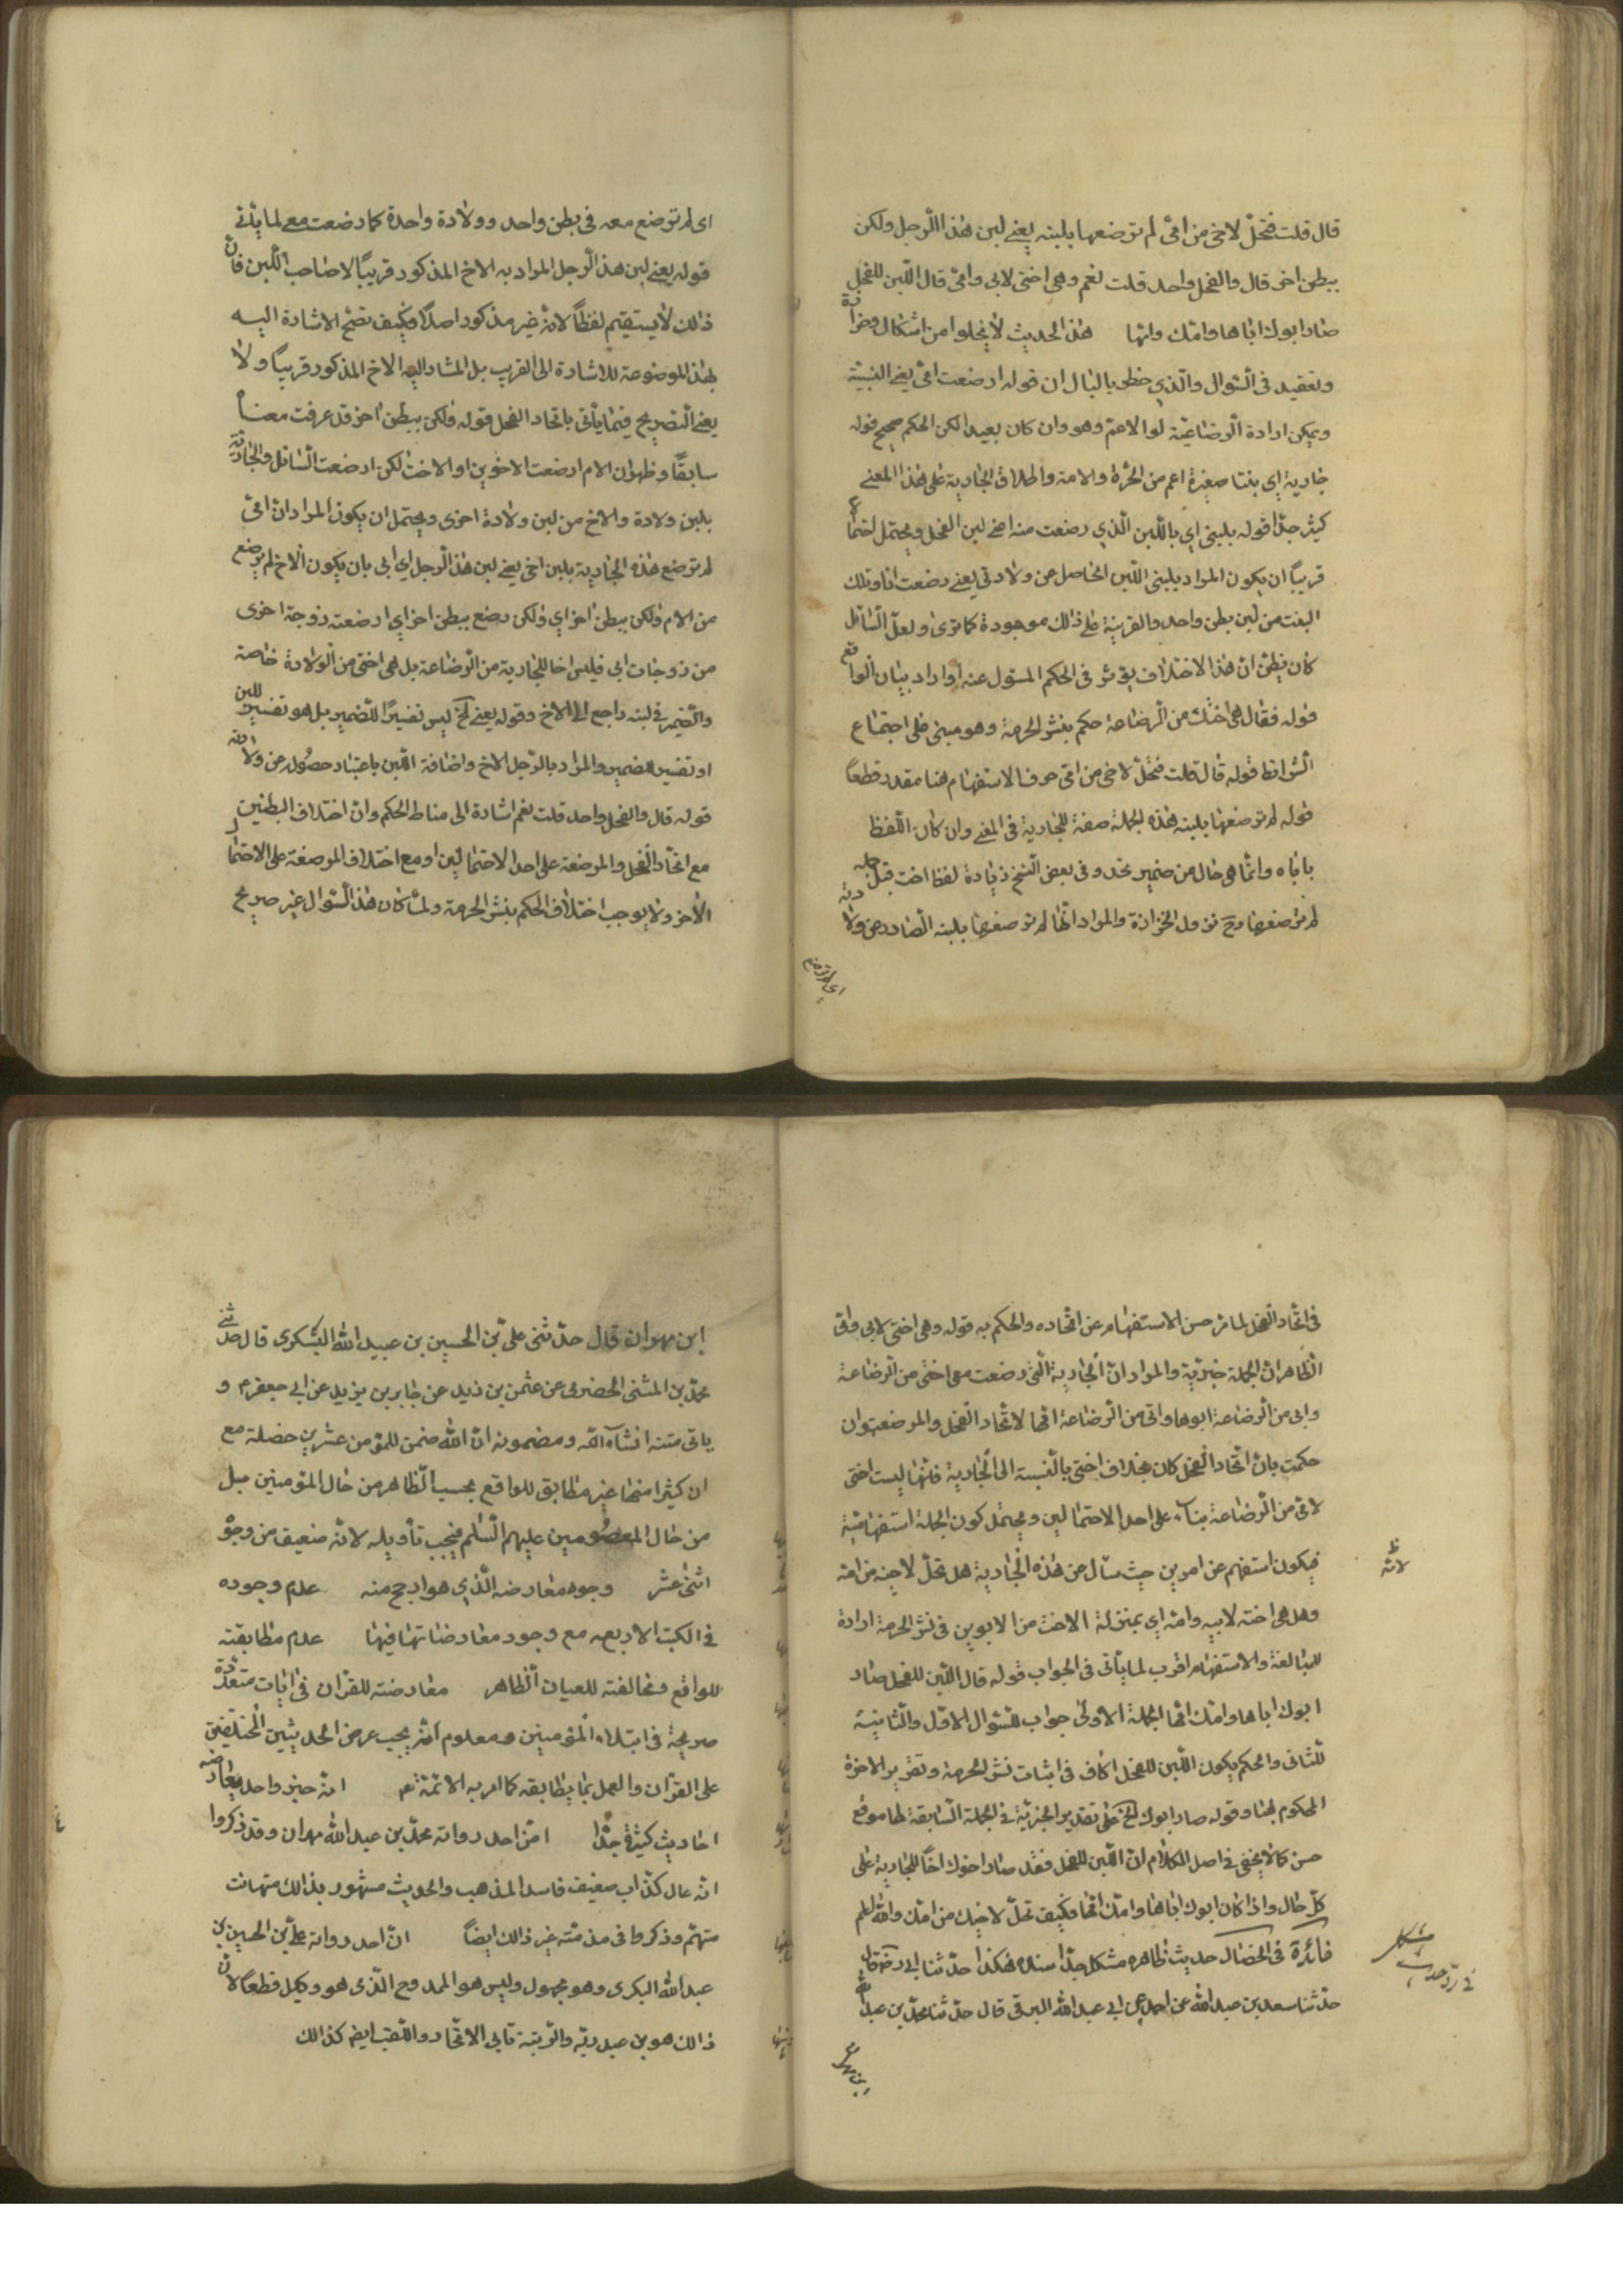 قال قلت فتحلّ لاخى من امّى لم ترضعها بلبنه يعنى لبن هذا الرجل ولكن
ببطن اخر قال والفحل واحد قلت نعم وهى اختى لابى وامّى قال اللبن للفحل
صار ابوك اباها وامّك وامّها هذا الحديث لا يخلوا من اشكال وخزانة
وتعقيد فى السّوال والّذي خطر بالبال ان قوله ارضعت امّى يعنى النسبيّة
ويمكن ارادة الرضاعيّة او الاعم وهو وان كان بعيدا لكن الحكم صحيح قوله
جارية اي بنتا صغيرة اعم من الحرّة والامة واطلاق الجارية على هذا المعنى
كثير جدّا قوله بلبنى اي باللّبن الّذي رضعت منه اعنى لبن الفحل ويحتمل احتمالا
قريبًا ان يكون المراد بلبنى اللّبن الحاصل عن ولادتى يعنى رضعت انا وتلك
البنت من لبن بطن واحد والقرينة على ذلك موجودة كما ترى ولعلّ السّائل
كان يظنّ انّ هذا الاختلاف يؤثر فى الحكم المسئول عنه او اراد بيان الواقع
قوله فقال هى اختك من الرضاعة حكم بنشر الحرمة وهو مبنى على اجتماع
الشرائط قوله قال قلت فتحلّ لاخى من امّى حرف الاستفهام هنا مقدر قطعًا
قوله لم ترضعها بلبنه هذه الجملة صفة للجارية فى المعنى وان كان اللّفظ
ياباه وانّما هى حال من ضمير تحلّ وفى بعض النّسخ زيادة لفظ اخت قبل جملة
لم ترضعها وح تزول الخزازة والمراد انّها لم ترضعها بلبنه الصادر عن ولادته
اى لم ترضع
اى لم ترضع معه فى بطن واحد وولادة واحدة كما رضعت معى لما يأتى
قوله يعنى لبن هذا الرجل المراد به الاخ المذكور قريبًا لا صاحب اللّبن فانّ
ذلك لا يستقيم لفظًا لانّه غير مذكور اصلا فكيف تصح الاشارة اليه
بهذا الموضوعة للاشارة الى القريب بل المشار اليه الاخ المذكور قريبًا ولا
يعنى التصريح فيما يأتى باتحاد الفحل قوله ولكن ببطن اخر قد عرفت معناه
سابقًا وظهر ان الام ارضعت الاخوين او الاخت لكن ارضعت السّائل والجارية
بلبن ولادة والاخ من لبن ولادة اخرى ويحتمل ان يكون المراد ان امّى
لم ترضع هذه الجارية بلبن اخى يعنى لبن هذا الرجل اي ابى بان يكون الاخ لم يرضع
من الام ولكن ببطن اخر اي ولكن رضع ببطن اخر اي ارضعته زوجة اخرى
من زوجات ابى فليس اخا للجارية من الرضاعة بل هى اختى من الولادة خاصة
والضمير فى لبنه راجع الى الاخ وقوله يعنى الخ ليس تفسيرًا للضمير بل هو تفسير للبن
او تفسير للضمير والمراد بالرّجل الاخ واضافة اللّبن باعتبار حصُوله عن ولادته
قوله قال والفحل واحد قلت نعم اشارة الى مناط الحكم وان اختلاف البطنين
مع اتحاد الفحل والمرضعة على احد الاحتمالين او مع اختلاف المرضعة على الاحتمال
الاخر ولا يوجب اختلاف الحكم بنشر الحرمة ولمّا كان هذا السّوال غير صريح
فى اتحاد الفحل لما مرّ حسن الاستفهام عن اتحاده والحكم به قوله وهى اختى لابى وامّى
الظاهر انّ الجملة خبريّة والمراد انّ الجارية الّتى رضعت معى اختى من الرضاعة
وابى من الرضاعة ابوها وامّى من الرضاعة امّها لاتّحاد الفحل والمرضعة وان
حكمت بانّ اتّحاد الفحل كان بخلاف اختى بالنّسبة الى الجارية فانّها ليست اختى
لامّى من الرّضاعة بناء على احد الاحتمالين ويحتمل كون الجملة استفهاميّة
لانّه ظ
فيكون استفهم عن امرين حيث سأل عن هذه الجارية هل تحلّ لاخيه من امّه
وهل هى اخته لابيه وامّه اي بمنزلة الاخت من الابوين فى نشر الحرمة ارادة
للمبالغة والاستفهام اقرب لما يأتى فى الجواب قوله قال اللّبن للفحل صار
ابوك اباها وامّك امّها الجملة الاولى جواب للسّوال الاوّل والثّانية
للثانى والحكم بكون اللّبن للفحل كاف فى اثبات نشر الحرمة وتقرير الاخوة
المحكوم بها وقوله صار ابوك الخ على تقدير الخبريّة فى الجملة السّابقة لها موقع
حسن كما لا يخفى فى اصل الكلام انّ اللّبن للفحل فقد صار اخوك اخًا للجارية على
كلّ حال واذا كان ابوك اباها وامّك امّها فكيف تحلّ لاخيك من امّك والله اعلم
فائدة فى الخصال حديث ظاهره مشكل جدّا سنده هكذا حدّثنا ابى ره قال
فى ردّ حديث مشكل
حدّثنا سعد بن عبد الله عن احمد بن ابى عبد الله البرقى قال حدّثنا محمّد بن عبد الله
ابن مهران
ابن مهران قال حدّثنى علىّ بن الحسين بن عبيد الله اليشكرى قال حدّثنى
محمّد بن المثنى الحضرمى عن عثمن بن زيد عن جابر بن يزيد عن ابى جعفر م و
ياتى متنه انشاء الله ومضمونه انّ الله ضمن للمؤمن عشرين خصلة مع
ان كثيرا منها غير مطابق للواقع بحسب الظاهر من حال المؤمنين بل
من حال المعصُومين عليهم السّلم فيجب تأويله لانّه ضعيف من وجوه
اثنى عشر وجوه معارضه الّذي هو ارجح منه عدم وجوده
فى الكتب الاربعه مع وجود معارضاتها فيها عدم مطابقته
للواقع ومخالفته للعيان الظاهر معارضته للقران فى ايات متعدّدة
صريحة فى ابتلاء المؤمنين ومعلوم انّه يجب عرض الحديثين المختلفين
على القران والعمل بما يطابقه كما امر به الائمّة م انّه خبر واحد يعارضه
احاديث كثيرة جدّا انّ احد رواته محمّد بن عبد الله مهران وقد ذكروا
انّه غال كذّاب ضعيف فاسد المذهب والحديث مشهور بذلك متهافت
متهم وذكروا فى مذمّته غير ذلك ايضًا انّ احد رواته علىّ بن الحسين بن
عبد الله البكرى وهو مجهول وليس هو الممدوح الذى هو وكيل قطعًا لانّ
ذلك هو بن عبد ربّه والرتبة تابى الاتّحاد واللّقب ايض كذلك